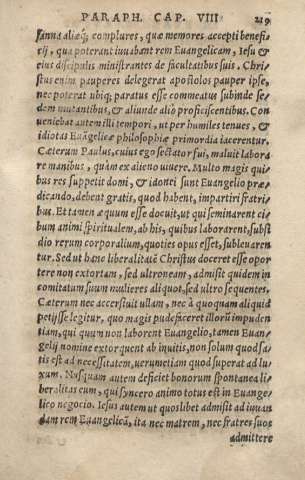 PARAPH. CAP. VIII 219
sanna aliæq́; complures, quæ memores accepti benefi
cij, qua poterant iuuabant rem Euangelicam, Iesu &
eius discipulis ministrantes de facultatibus suis. Chri-
stus enim pauperes delegerat apostolos pauper ipse,
nec poterat ubiq; paratus esse commeatus subinde se-
dem mutantibus, & aliunde aliò proficiscentibus. Con
ueniebat autem illi tempori, ut per humiles tenues, &
idiotas Euãgelicæ philosophiæ primordia iacerentur.
Cæterum Paulus, cuius ego sectator fui, maluit labora
re manibus, quàm ex alieno uiuere. Multo magis qui-
bus res suppetit domi, & idonei sunt Euangelio præ-
dicando, debent gratis, quod habent, impartiri fratri-
bus. Et tamen æquum esse docuit, ut qui seminarent ci-
bum animi spiritualem, ab his, quibus laborarent, subsi
dio rerum corporalium, quoties opus esset, subleuaren
tur. Sed ut hanc liberalitatẽ Christus doceret esse opor
tere non extortam, sed ultroneam, admisit quidem in
comitatum suum mulieres aliquot, sed ultro sequentes.
Cæterum nec accersiuit ullam, nec à quoquam aliquid
petijsse legitur, quo magis pudefaceret illorũ impuden
tiam, qui quum non laborent Euangelio, tamen Euan-
gelij nomine extorquent ab inuitis, non solum quod sa-
tis est ad necessitatem, uerumetiam quod superat ad lu-
xum. Nusquam autem deficiet bonorum spontanea li-
beralitas eum, qui syncero animo totus est in Euange-
lico negocio. Iesus autem ut quoslibet admisit ad iuuan
dam rem Euangelicã, ita nec matrem, nec fratres suos
admittere